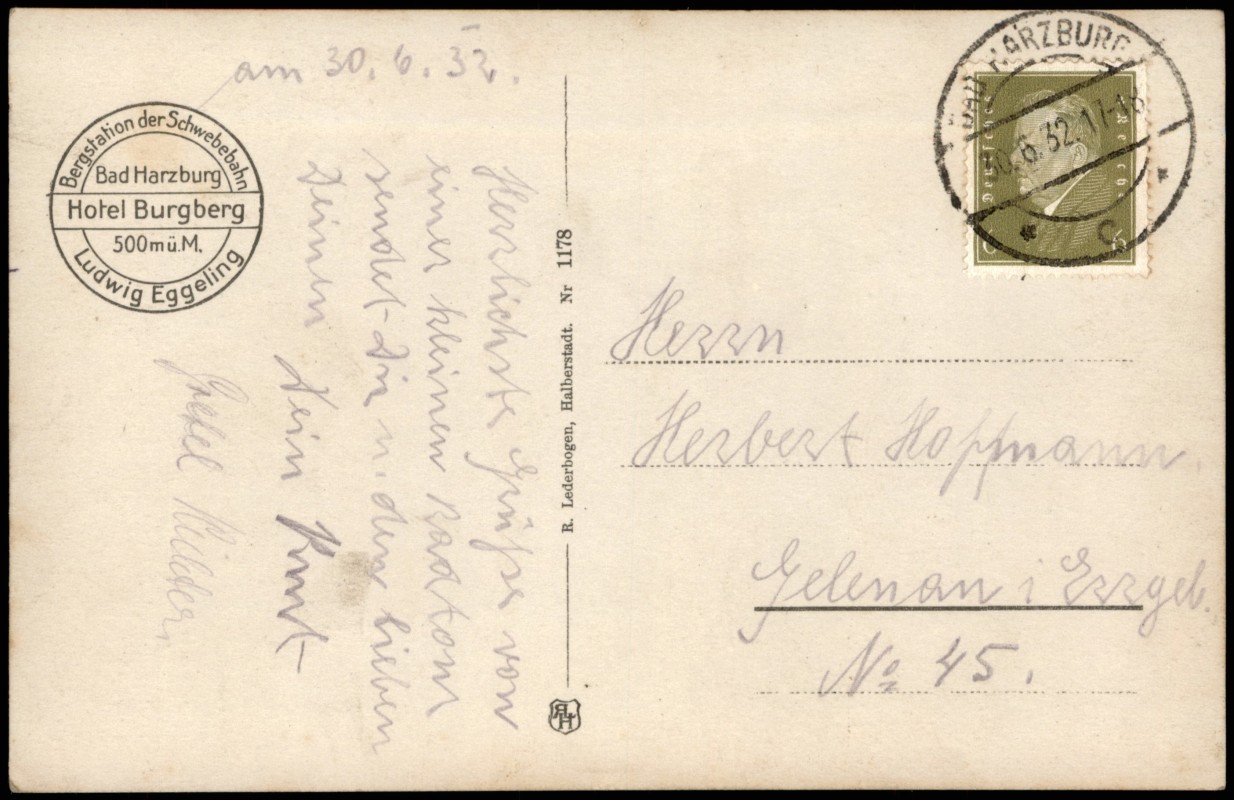 am 30.6.32.
Bergstation der Schwebebahn
Bad Harzburg
Hotel Burgberg
500m ü.M.
Ludwig Eggeling
Herzlichste Grüße von
einer kleinen Radtour
sendet Dir u. den lieben
Deinen
Dein Kurt
R. Lederbogen, Halberstadt. Nr 1178
RLH
BAD HARZBURG
30.6.32.17-18
c
Deutsches Reich
6 6
Herrn
Herbert Hoffmann
Gelenau i Erzgeb.
No 45.